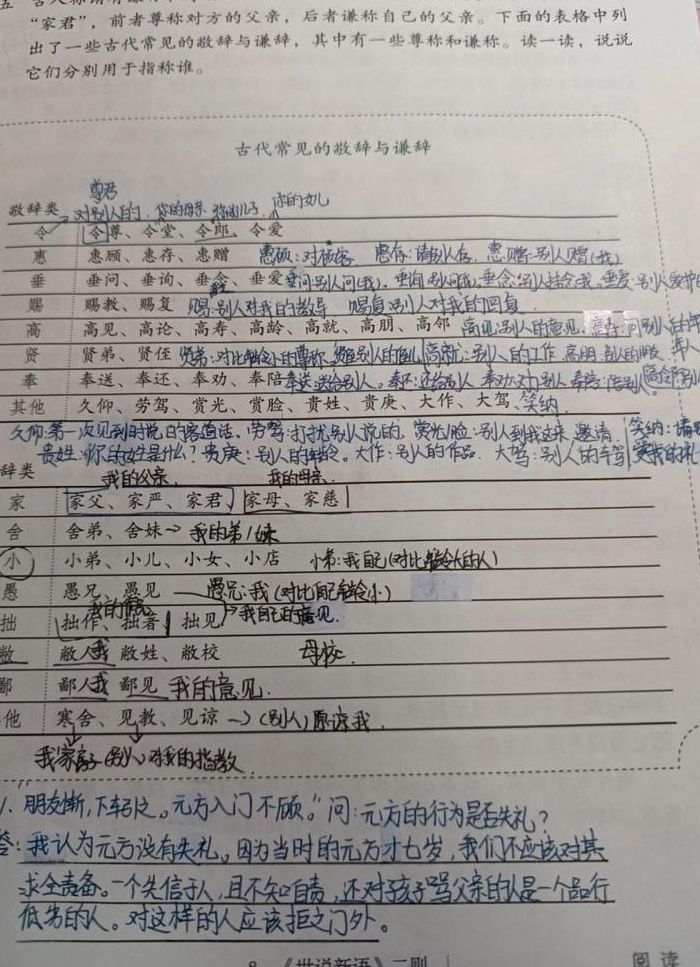 “家君”，前者尊称对方的父亲，后者谦称自己的父亲。下面的表格中列
出了一些古代常见的敬辞与谦辞，其中有一些尊称和谦称。读一读，说说
它们分别用于指称谁。
古代常见的敬辞与谦辞
尊君
敬辞类 对别人的、你的母亲 你的儿子 你的女儿
令 令尊、令堂、令郎、令爱
惠 惠顾、惠存、惠赠 惠顾:对顾客 惠存:请别人存 惠赠:别人赠(我)
垂 垂问、垂询、垂念、垂爱 垂问:别人问(我)、垂询:别人问我、垂念:别人挂念我、垂爱:别人爱护
赐 赐教、赐复 赐:别人对我的教导 赐复:别人对我的回复
高 高见、高论、高寿、高龄、高就、高朋、高邻 高见:别人的意见 高寿:问别人的年
贤 贤弟、贤侄 贤弟:对比年龄小的尊称 贤侄:别人的侄儿 高就:别人的工作 高朋:别人的朋友
奉 奉送、奉还、奉劝、奉陪 奉送:送给别人。奉还:还给别人 奉劝:劝别人 奉陪:陪别人 高邻:别人
其他 久仰、劳驾、赏光、赏脸、贵姓、贵庚、大作、大驾、笑纳
久仰:第一次见到时说的客道话。劳驾:打扰别人说的。赏光/脸:别人到我这来,邀请 笑纳:请
贵姓:你的姓是什么? 贵庚:别人的年龄。大作:别人的作品. 大驾:别人的车驾 我的礼
辞类 我的父亲. 我的母亲.
家 家父、家严、家君、家母、家慈
舍 舍弟、舍妹 我的弟/妹
小 小弟、小儿、小女、小店 小弟:我自己(对比年龄大的人)
愚 愚兄、愚见 愚兄:我(对比自己年龄小)
我自己的意见.
拙 拙作、拙著、拙见
敝 敝人 我 敝姓、敝校 母校.
鄙 鄙人 我 鄙见 我的意见.
他 寒舍、见教、见谅 (别人)原谅我.
我家房子 (别人)对我的指教
1. 朋友惭,下车引之。元方入门不顾。”问:元方的行为是否失礼?
答:我认为元方没有失礼。因为当时的元方才七岁,我们不应该对其
求全责备。一个失信于人,且不知自责,还对孩子骂父亲的人是一个品行
低劣的人。对这样的人应该拒之门外。
8 《世说新语》二则 阅读